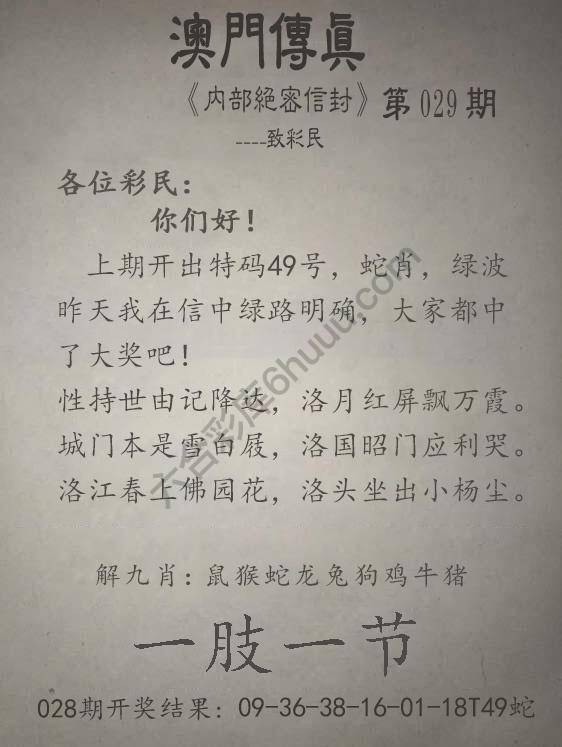 澳門傳真
《内部絕密信封》第029期
----致彩民
各位彩民：
你们好！
上期开出特码49号，蛇肖，绿波
昨天我在信中绿路明确，大家都中
了大奖吧！
性持世由记降达，洛月红屏飘万霞。
城门本是雪白屐，洛国昭门应利哭。
洛江春上佛园花，洛头坐出小杨尘。
解九肖：鼠猴蛇龙兔狗鸡牛猪
一肢一节
028期开奖结果：09-36-38-16-01-18T49蛇
六合彩库6huuu.com